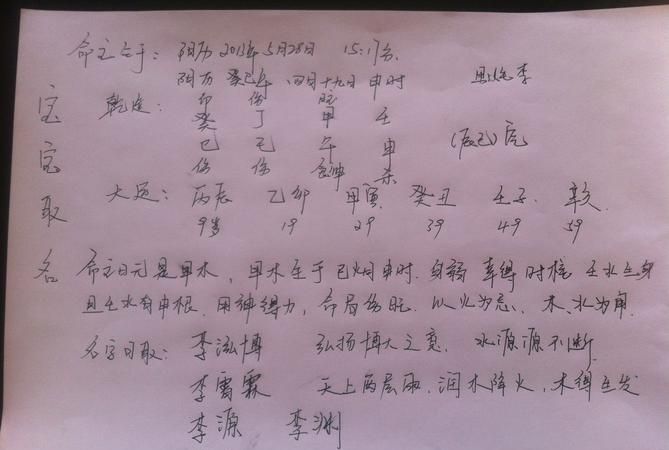 命主生于：阳历2013年5月28日 15:17分.
阴历 癸巳年 四月十九日 申时 男 姓李
印 伤 日主
乾造：癸 丁 甲 壬
巳 巳 午 申 (辰巳)空
伤 伤 食神 杀
大运：丙辰 乙卯 甲寅 癸丑 壬子 辛亥
9岁 19 29 39 49 59
宝宝取名
命主日元是甲木，甲木生于巳火月申时.身弱 幸得时柱 壬水生身
且壬水有申根.用神得力，命局伤旺.以火为忌，木、水为用.
名字可取：李泓博 弘扬博大之意.水源源不断.
李雨霖 天上两层雨.润木降火，木得生发
李源 李渊